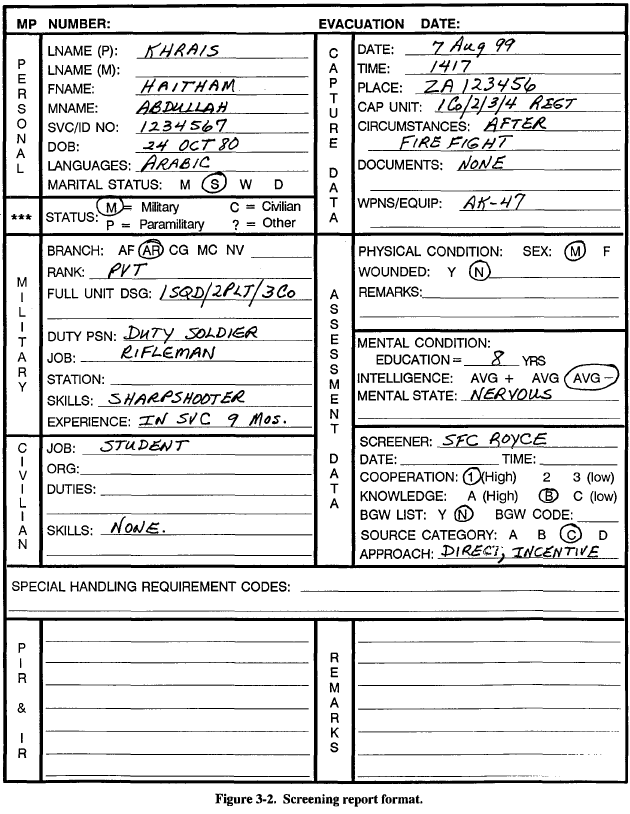 MP NUMBER: EVACUATION DATE:
PERSONAL
LNAME (P): KHRAIS
LNAME (M):
FNAME: HAITHAM
MNAME: ABDULLAH
SVC/ID NO: 1234567
DOB: 24 OCT 80
LANGUAGES: ARABIC
MARITAL STATUS: M S W D
*** STATUS: M = Military C = Civilian
P = Paramilitary ? = Other
MILITARY
BRANCH: AF AR CG MC NV
RANK: PVT
FULL UNIT DSG: 1SQD/2PLT/3Co
DUTY PSN: DUTY SOLDIER
JOB: RIFLEMAN
STATION:
SKILLS: SHARPSHOOTER
EXPERIENCE: IN SVC 9 Mos.
CIVILIAN
JOB: STUDENT
ORG:
DUTIES:
SKILLS: NONE.
CAPTURE DATA
DATE: 7 Aug 99
TIME: 1417
PLACE: ZA 123456
CAP UNIT: 1Co/2/3/4 REGT
CIRCUMSTANCES: AFTER
FIRE FIGHT
DOCUMENTS: NONE
WPNS/EQUIP: AK-47
ASSESSMENT DATA
PHYSICAL CONDITION: SEX: M F
WOUNDED: Y N
REMARKS:
MENTAL CONDITION:
EDUCATION = 8 YRS
INTELLIGENCE: AVG + AVG AVG -
MENTAL STATE: NERVOUS
SCREENER: SFC ROYCE
DATE: TIME:
COOPERATION: 1 (High) 2 3 (low)
KNOWLEDGE: A (High) B C (low)
BGW LIST: Y N BGW CODE:
SOURCE CATEGORY: A B C D
APPROACH: DIRECT, INCENTIVE
SPECIAL HANDLING REQUIREMENT CODES:
PIR & IR
REMARKS
Figure 3-2. Screening report format.